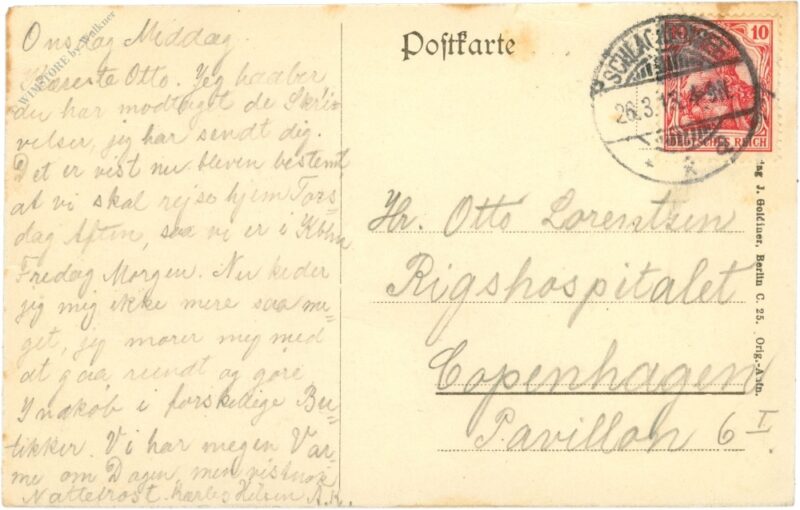 Onsdag Middag.
Kæreste Otto. Jeg haaber
du har modtaget de Skri-
velser, jeg har sendt dig.
Det er vist nu bleven bestemt
at vi skal rejse hjem Tors-
dag Aften, saa vi er i Kbhn
Fredag Morgen. Nu keder
jeg mig ikke mere saa me-
get, jeg morer mig med
at gaa rundt og göre
Indköb i forskellige Bu-
tikker. Vi har megen Var-
me om Dagen, men vistnok
Nattefrost. Kærlig Hilsen
WIMSTORE by Walkner
Postkarte
SCHLACHTENSEE
26.3.13.4-5N.
* * a
10
DEUTSCHES REICH
Hr. Otto Lorentzen
Rigshospitalet
Copenhagen
Pavillon 6 I
J. Goldiner, Berlin C. 25. Orig.-Aufn.